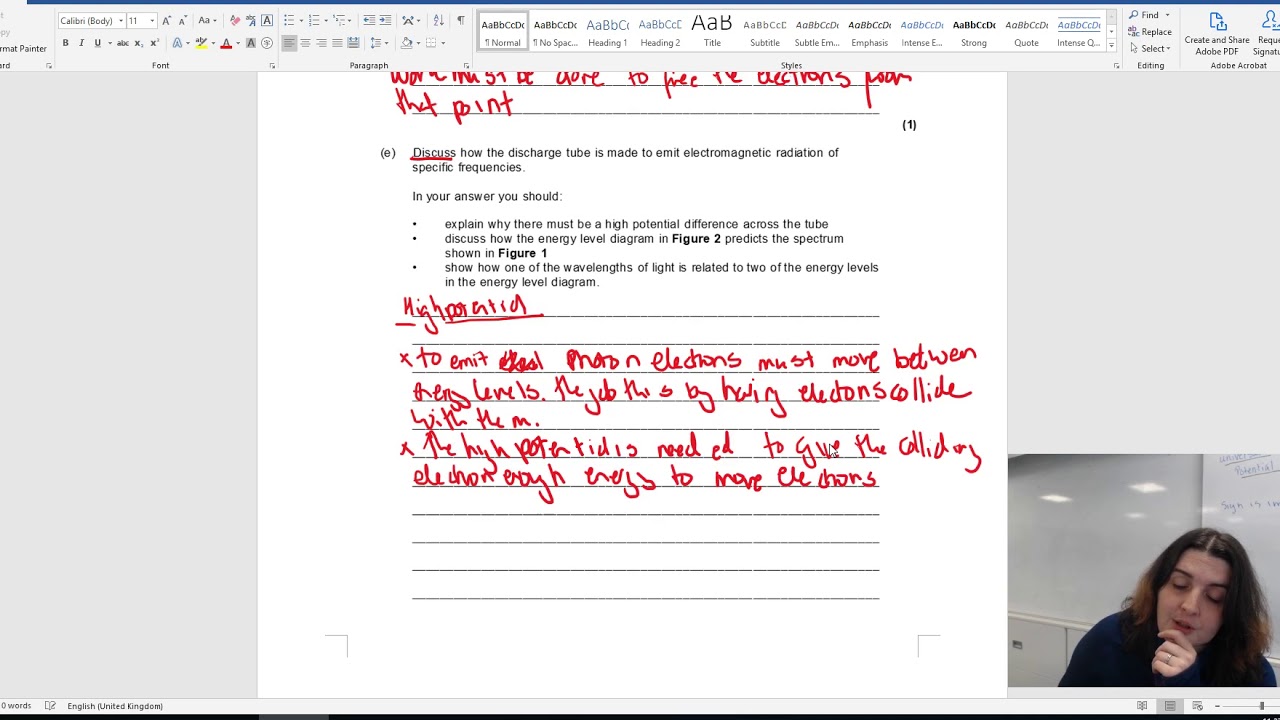 Calibri (Body)
11
Aa
Find
Replace
Select
Create and Share
Adobe PDF
Reque
Signatu
ormat Painter
B I U abc x₂ x²
AaBbCcDc
AaBbCcDc
AaBbCc
AaBbCcD
AaB
AaBbCcDc
AaBbCcDc
AaBbCcDc
AaBbCcDc
AaBbCcDc
AaBbCcDc
AaBbCcDc
¶ Normal
¶ No Spac...
Heading 1
Heading 2
Title
Subtitle
Subtle Em...
Emphasis
Intense E...
Strong
Quote
Intense Q...
ard
Font
Paragraph
Styles
Editing
Adobe Acrobat
work must be done to free the electrons from
that point
(1)
(e) Discuss how the discharge tube is made to emit electromagnetic radiation of
specific frequencies.
In your answer you should:
• explain why there must be a high potential difference across the tube
• discuss how the energy level diagram in Figure 2 predicts the spectrum
shown in Figure 1
• show how one of the wavelengths of light is related to two of the energy levels
in the energy level diagram.
High potential
x to emit photon electrons must move between
energy levels. They do this by having electrons collide
with them.
x The high potential is needed to give the colliding
electron enough energy to move electrons
Potential
sign is im
0 words
English (United Kingdom)